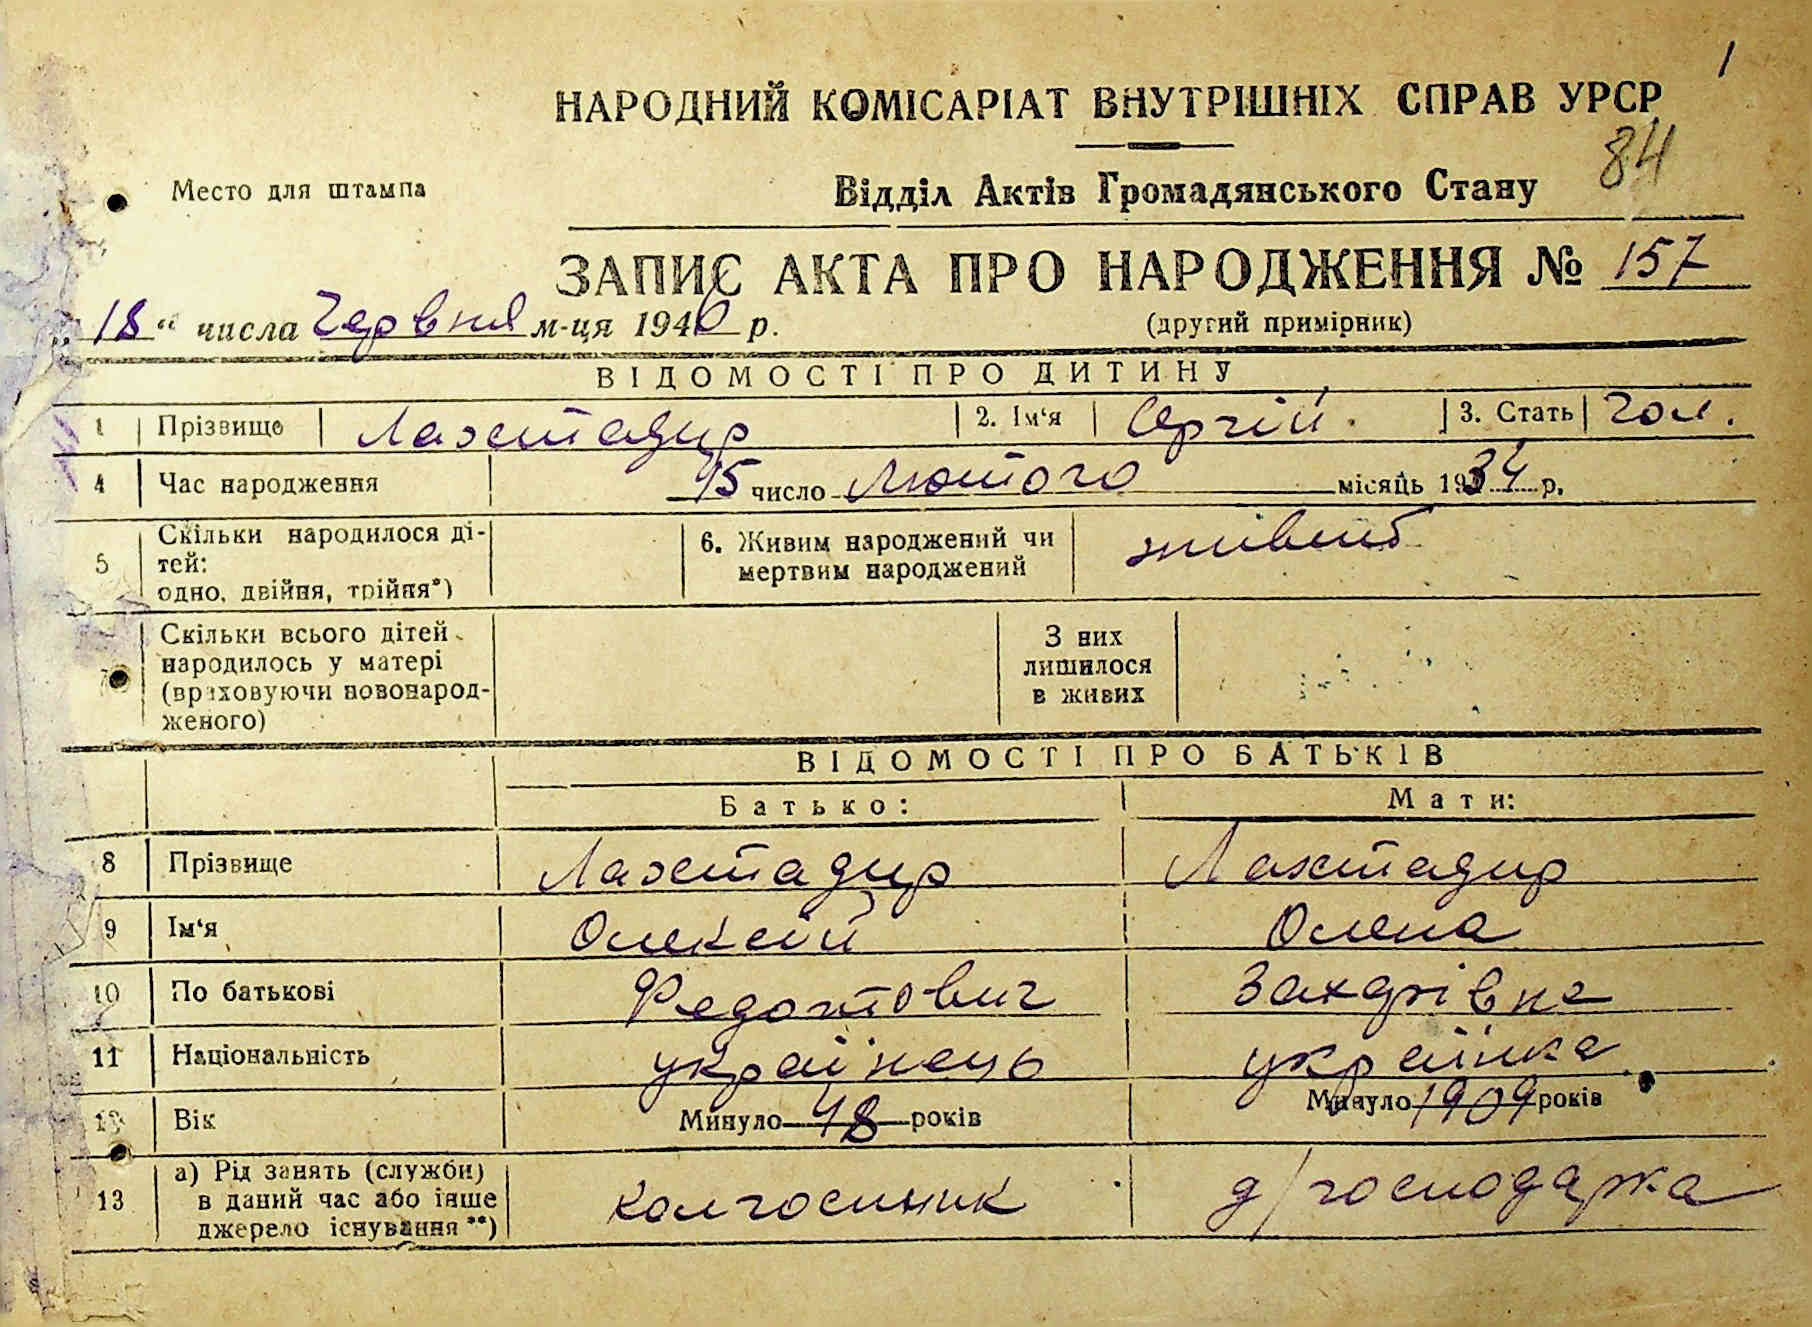 1
НАРОДНИЙ КОМІСАРІАТ ВНУТРІШНІХ СПРАВ УРСР
84
Место для штампа
Відділ Актів Громадянського Стану
ЗАПИС АКТА ПРО НАРОДЖЕННЯ № 157
„18“ числа Червня м-ця 1940 р.
(другий примірник)
ВІДОМОСТІ ПРО ДИТИНУ
1 Прізвище Лахтадир 2. Ім‘я Сергій. 3. Стать чол.
4 Час народження 15 число Лютого місяць 1934 р.
5 Скільки народилося ді-
тей:
одно, двійня, трійня*)
6. Живим народжений чи
мертвим народжений
живим
7 Скільки всього дітей
народилось у матері
(враховуючи новонарод-
женого)
З них
лишилося
в живих
ВІДОМОСТІ ПРО БАТЬКІВ
Батько: Мати:
8 Прізвище Лахтадир Лахтадир
9 Ім‘я Олексій Олена
10 По батькові Федотович Захарівна
11 Національність українець українка
12 Вік Минуло 48 років Минуло 1909 років
13 а) Рід занять (служби)
в даний час або інше
джерело існування **)
колгоспник д/господарка